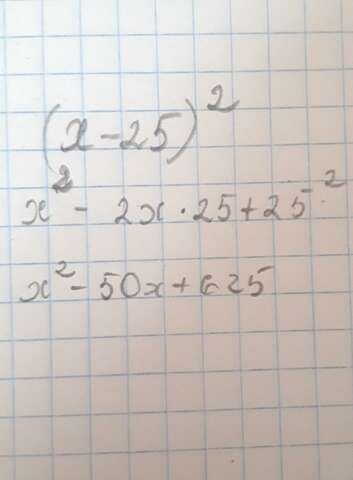 (x-25)²
x² - 2x·25+25²
x²-50x+625